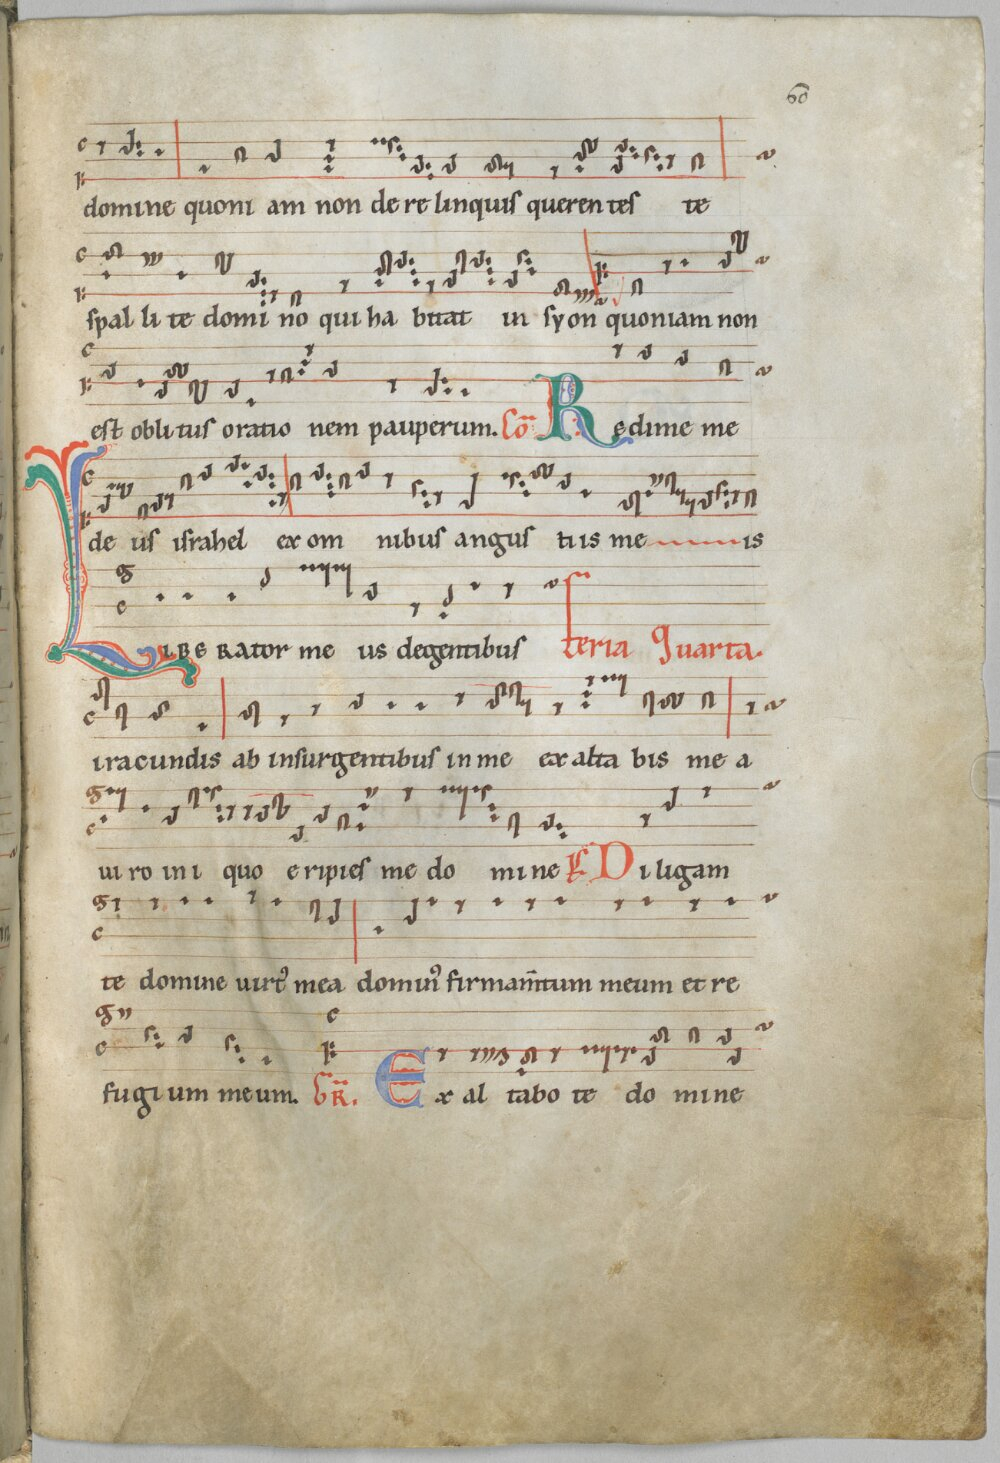 60
domine quoni am non de re linquis queren tes te
spal li te domi no qui ha bitat in syon quoniam non
est obli tus oratio nem pauperum. Co Redime me
de us israhel ex om nibus angus tiis me is
LIBERATOR me us degentibus feria Quarta.
iracundis ab insurgentibus in me exalta bis me a
ui ro in i quo e ripies me do mine Diligam
te domine uirt᾽ mea domin᾽ firmam̄tum meum et re
fugium meum. GR. Ex al tabo te do mine